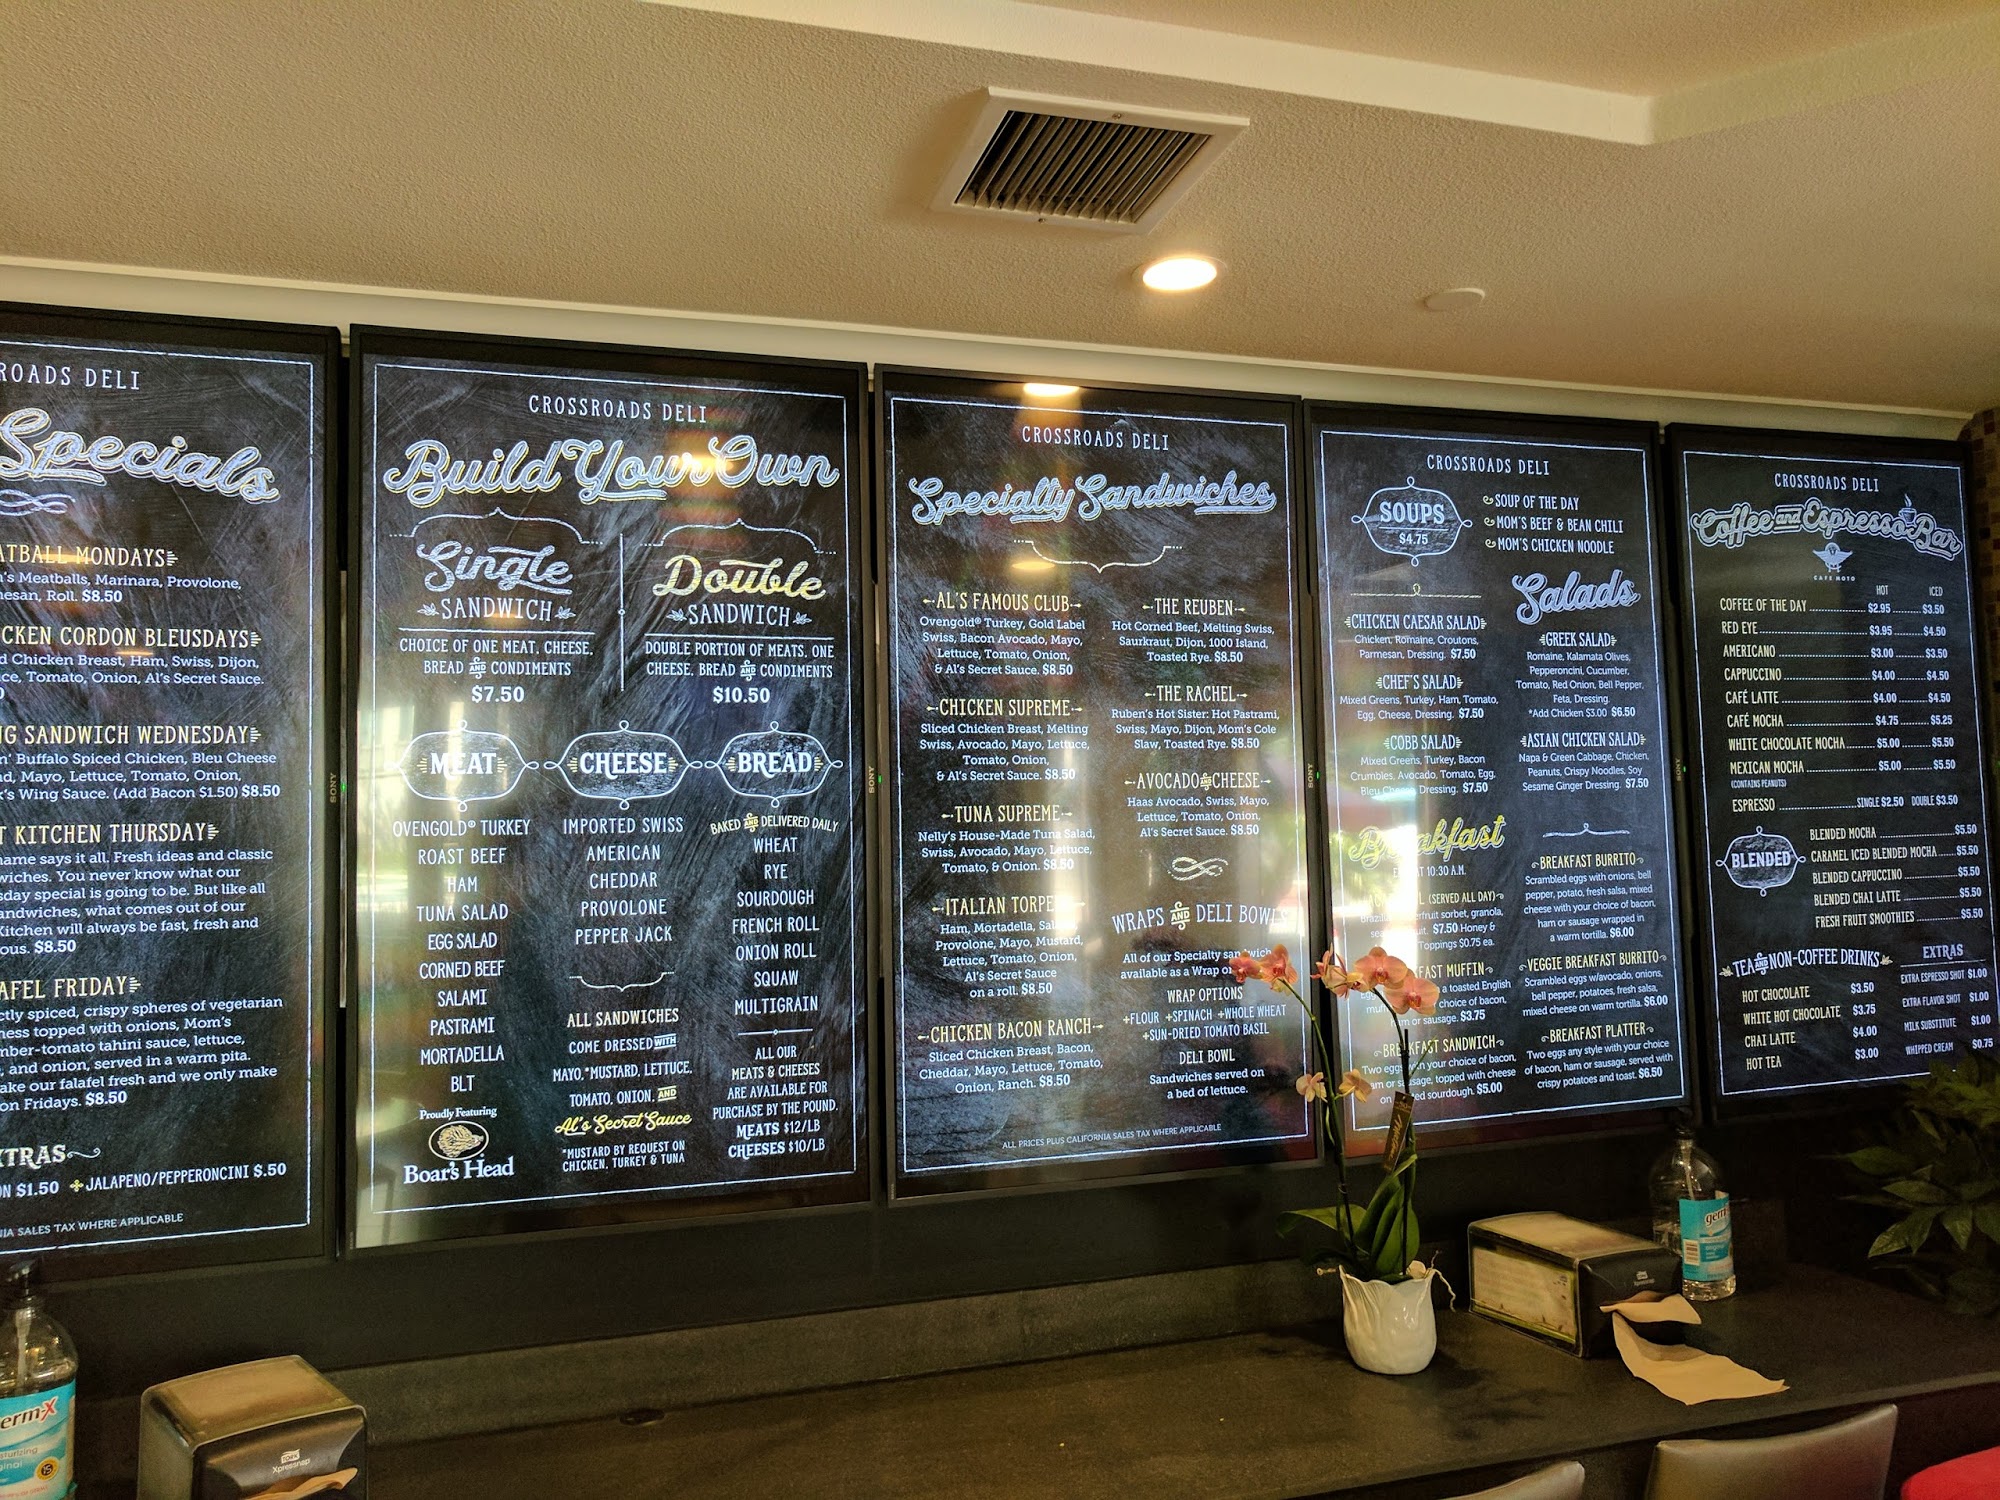 ROADS DELI
Specials
ATBALL MONDAYS
n's Meatballs, Marinara, Provolone,
mesan, Roll. $8.50
CKEN CORDON BLEUSDAYS
d Chicken Breast, Ham, Swiss, Dijon,
ce, Tomato, Onion, Al's Secret Sauce.
0
NG SANDWICH WEDNESDAY
n' Buffalo Spiced Chicken, Bleu Cheese
nd, Mayo, Lettuce, Tomato, Onion,
k's Wing Sauce. (Add Bacon $1.50) $8.50
T KITCHEN THURSDAY
name says it all. Fresh ideas and classic
wiches. You never know what our
sday special is going to be. But like all
andwiches, what comes out of our
Kitchen will always be fast, fresh and
ous. $8.50
AFEL FRIDAY
ctly spiced, crispy spheres of vegetarian
ness topped with onions, Mom's
mber-tomato tahini sauce, lettuce,
, and onion, served in a warm pita.
ake our falafel fresh and we only make
on Fridays. $8.50
XTRAS
ON $1.50 JALAPENO/PEPPERONCINI $.50
NIA SALES TAX WHERE APPLICABLE
CROSSROADS DELI
Build Your Own
Single
SANDWICH
CHOICE OF ONE MEAT, CHEESE,
BREAD AND CONDIMENTS
$7.50
Double
SANDWICH
DOUBLE PORTION OF MEATS, ONE
CHEESE, BREAD AND CONDIMENTS
$10.50
MEAT
OVENGOLD® TURKEY
ROAST BEEF
HAM
TUNA SALAD
EGG SALAD
CORNED BEEF
SALAMI
PASTRAMI
MORTADELLA
BLT
Proudly Featuring
Boar's Head
CHEESE
IMPORTED SWISS
AMERICAN
CHEDDAR
PROVOLONE
PEPPER JACK
ALL SANDWICHES
COME DRESSED WITH
MAYO,*MUSTARD, LETTUCE,
TOMATO, ONION, AND
Al's Secret Sauce
*MUSTARD BY REQUEST ON
CHICKEN, TURKEY & TUNA
BREAD
BAKED AND DELIVERED DAILY
WHEAT
RYE
SOURDOUGH
FRENCH ROLL
ONION ROLL
SQUAW
MULTIGRAIN
ALL OUR
MEATS & CHEESES
ARE AVAILABLE FOR
PURCHASE BY THE POUND.
MEATS $12/LB
CHEESES $10/LB
SONY
CROSSROADS DELI
Specialty Sandwiches
AL'S FAMOUS CLUB
Ovengold® Turkey, Gold Label
Swiss, Bacon Avocado, Mayo,
Lettuce, Tomato, Onion,
& Al's Secret Sauce. $8.50
CHICKEN SUPREME
Sliced Chicken Breast, Melting
Swiss, Avocado, Mayo, Lettuce,
Tomato, Onion,
& Al's Secret Sauce. $8.50
TUNA SUPREME
Nelly's House-Made Tuna Salad,
Swiss, Avocado, Mayo, Lettuce,
Tomato, & Onion. $8.50
ITALIAN TORPE
Ham, Mortadella, Sala
Provolone, Mayo, Mustard,
Lettuce, Tomato, Onion,
Al's Secret Sauce
on a roll. $8.50
CHICKEN BACON RANCH
Sliced Chicken Breast, Bacon,
Cheddar, Mayo, Lettuce, Tomato,
Onion, Ranch. $8.50
THE REUBEN
Hot Corned Beef, Melting Swiss,
Saurkraut, Dijon, 1000 Island,
Toasted Rye. $8.50
THE RACHEL
Ruben's Hot Sister: Hot Pastrami,
Swiss, Mayo, Dijon, Mom's Cole
Slaw, Toasted Rye. $8.50
AVOCADO AND CHEESE
Haas Avocado, Swiss, Mayo,
Lettuce, Tomato, Onion,
Al's Secret Sauce. $8.50
WRAPS AND DELI BOWLS
All of our Specialty sandwich
available as a Wrap or
WRAP OPTIONS
+FLOUR +SPINACH +WHOLE WHEAT
+SUN-DRIED TOMATO BASIL
DELI BOWL
Sandwiches served on
a bed of lettuce.
ALL PRICES PLUS CALIFORNIA SALES TAX WHERE APPLICABLE
SONY
SONY
CROSSROADS DELI
SOUPS
$4.75
SOUP OF THE DAY
MOM'S BEEF & BEAN CHILI
MOM'S CHICKEN NOODLE
Salads
CHICKEN CAESAR SALAD
Chicken, Romaine, Croutons,
Parmesan, Dressing. $7.50
CHEF'S SALAD
Mixed Greens, Turkey, Ham, Tomato,
Egg, Cheese, Dressing. $7.50
COBB SALAD
Mixed Greens, Turkey, Bacon
Crumbles, Avocado, Tomato, Egg,
Bleu Cheese, Dressing. $7.50
GREEK SALAD
Romaine, Kalamata Olives,
Pepperoncini, Cucumber,
Tomato, Red Onion, Bell Pepper,
Feta, Dressing.
*Add Chicken $3.00 $6.50
ASIAN CHICKEN SALAD
Napa & Green Cabbage, Chicken,
Peanuts, Crispy Noodles, Soy
Sesame Ginger Dressing. $7.50
Breakfast
AT 10:30 A.M.
(SERVED ALL DAY)
sorbet, granola,
$7.50 Honey &
Toppings $0.75 ea.
FAST MUFFIN
a toasted English
choice of bacon,
or sausage. $3.75
BREAKFAST SANDWICH
Two eggs your choice of bacon,
or sausage, topped with cheese
on sourdough. $5.00
BREAKFAST BURRITO
Scrambled eggs with onions, bell
pepper, potato, fresh salsa, mixed
cheese with your choice of bacon,
ham or sausage wrapped in
a warm tortilla. $6.00
VEGGIE BREAKFAST BURRITO
Scrambled eggs w/avocado, onions,
bell pepper, potatoes, fresh salsa,
mixed cheese on warm tortilla. $6.00
BREAKFAST PLATTER
Two eggs any style with your choice
of bacon, ham or sausage, served with
crispy potatoes and toast. $6.50
SONY
CROSSROADS DELI
Coffee and Espresso Bar
CAFE MOTO
HOT ICED
COFFEE OF THE DAY $2.95 $3.50
RED EYE $3.95 $4.50
AMERICANO $3.00 $3.50
CAPPUCCINO $4.00 $4.50
CAFÉ LATTE $4.00 $4.50
CAFÉ MOCHA $4.75 $5.25
WHITE CHOCOLATE MOCHA $5.00 $5.50
MEXICAN MOCHA $5.00 $5.50
(CONTAINS PEANUTS)
ESPRESSO SINGLE $2.50 DOUBLE $3.50
BLENDED
BLENDED MOCHA $5.50
CARAMEL ICED BLENDED MOCHA $5.50
BLENDED CAPPUCCINO $5.50
BLENDED CHAI LATTE $5.50
FRESH FRUIT SMOOTHIES $5.50
TEA AND NON-COFFEE DRINKS
HOT CHOCOLATE $3.50
WHITE HOT CHOCOLATE $3.75
CHAI LATTE $4.00
HOT TEA $3.00
EXTRAS
EXTRA ESPRESSO SHOT $1.00
EXTRA FLAVOR SHOT $1.00
MILK SUBSTITUTE $1.00
WHIPPED CREAM $0.75
erm-X
TORK
Xpressnap
germ
Xpressnap